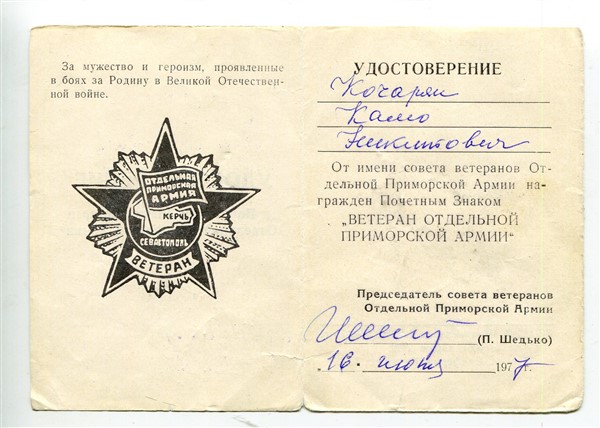 За мужество и героизм, проявленные
в боях за Родину в Великой Отечествен-
ной войне.
ОТДЕЛЬНАЯ
ПРИМОРСКАЯ
АРМИЯ
КЕРЧЬ
СЕВАСТОПОЛЬ
ВЕТЕРАН
УДОСТОВЕРЕНИЕ
Кочарян
Камо
Никитович
От имени совета ветеранов От-
дельной Приморской Армии на-
гражден Почетным Знаком
„ВЕТЕРАН ОТДЕЛЬНОЙ
ПРИМОРСКОЙ АРМИИ“
Председатель совета ветеранов
Отдельной Приморской Армии
(П. Шедько)
„16. июля 1977г.